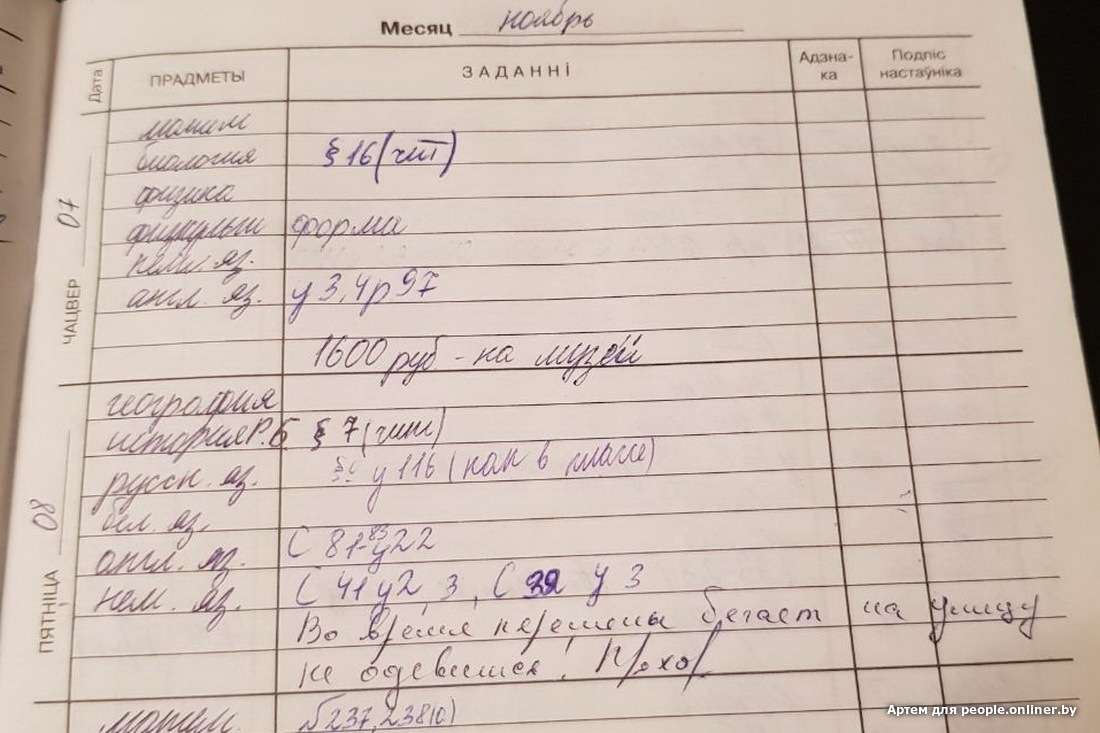 Месяц ноябрь
Дата ПРАДМЕТЫ ЗАДАННІ Адзна-ка Подпіс настаўніка
ЧАЦВЕР 07
матем
биология § 16 (чит)
физика
физкульт форма
нем. яз.
англ. яз. у 3,4 р 97
1600 руб - на музей
ПЯТНІЦА 08
география
история Р.Б. § 7 (чит)
русск. яз. у 116 (как в классе)
бел. яз.
англ. яз. С 81-83 у22
нем. яз. С 41 у2, 3, С 22 у 3
Во время перемены бегает на улицу
не одевшись!
матем. №237,238(а)
Артем для people.onliner.by